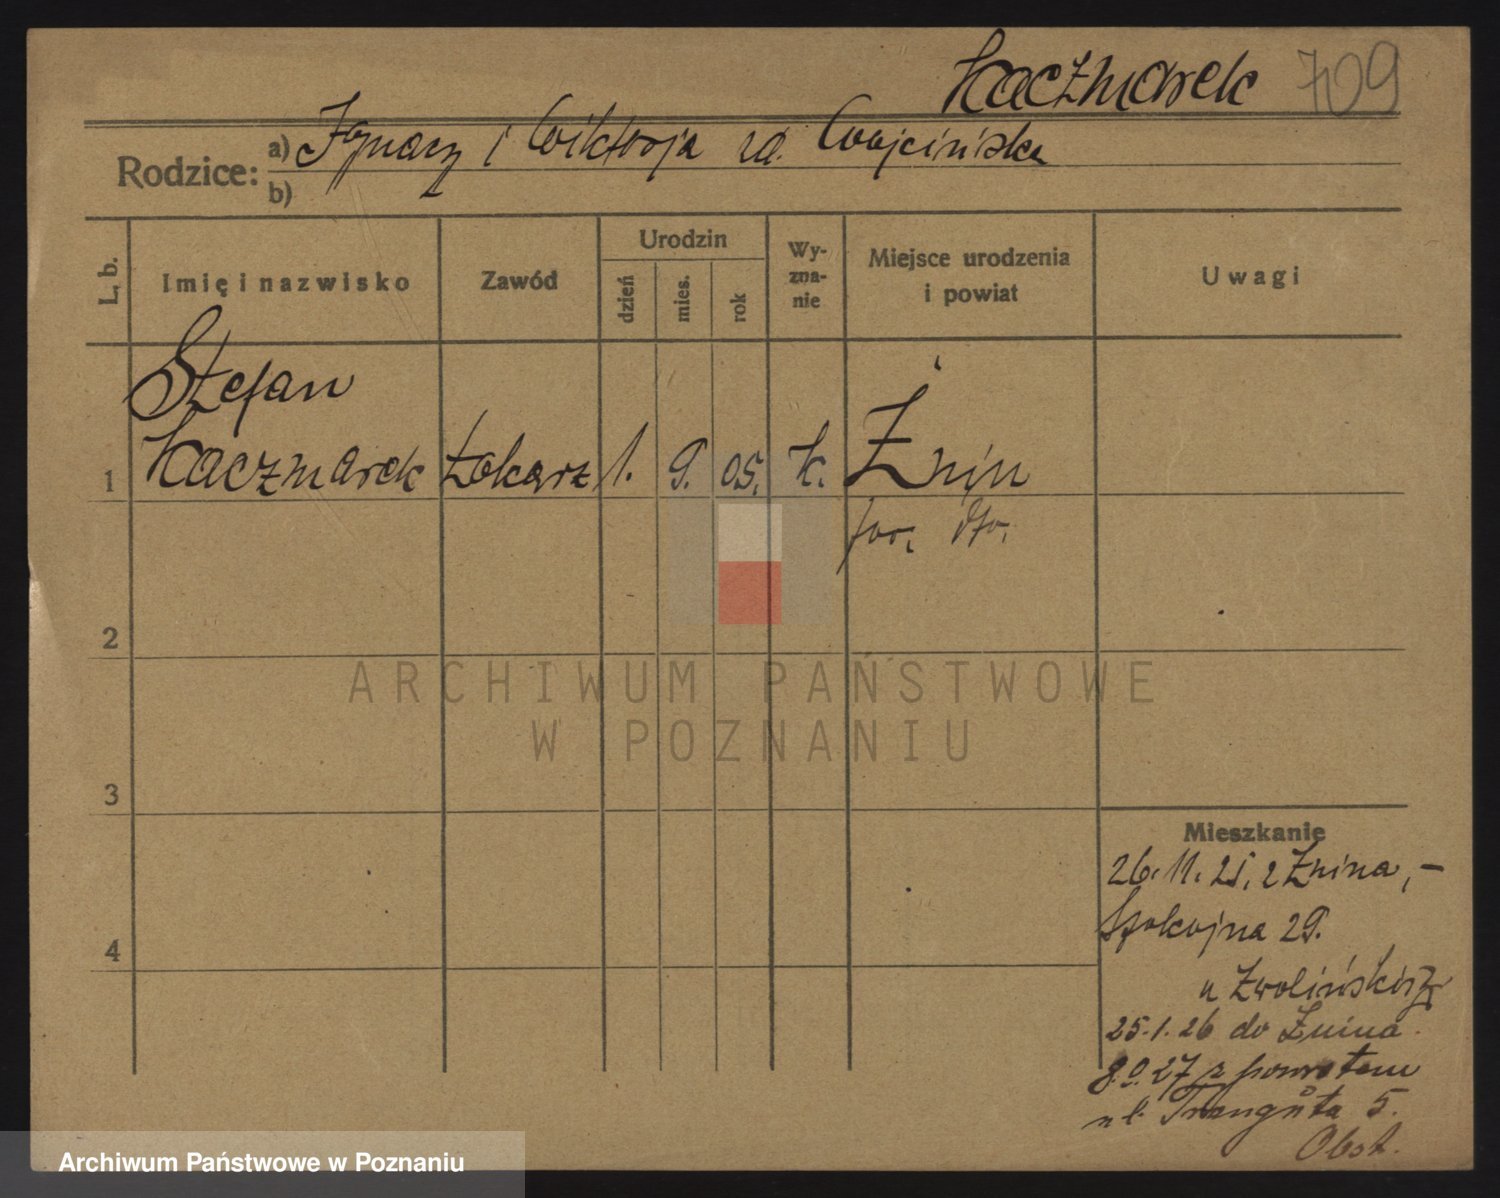 Kaczmarek 709
Rodzice:
a) Ignacy i Wiktorja zd. Wojcińska
b)
L. b.
Imię i nazwisko
Zawód
Urodzin
dzień
mies.
rok
Wy-
zna-
nie
Miejsce urodzenia
i powiat
Uwagi
Stefan
1 Kaczmarek tokarz 1. 9. 05. k. Żnin
pow. dto.
2
3
4
Mieszkanie
26.11.25. z Żnina, –
Spokojna 29.
u Zwolińskiej
25.1.26 do Żnina
8.9.27 z powrotem
ul. Traugutta 5.
ARCHIWUM PAŃSTWOWE
W POZNANIU
Archiwum Państwowe w Poznaniu